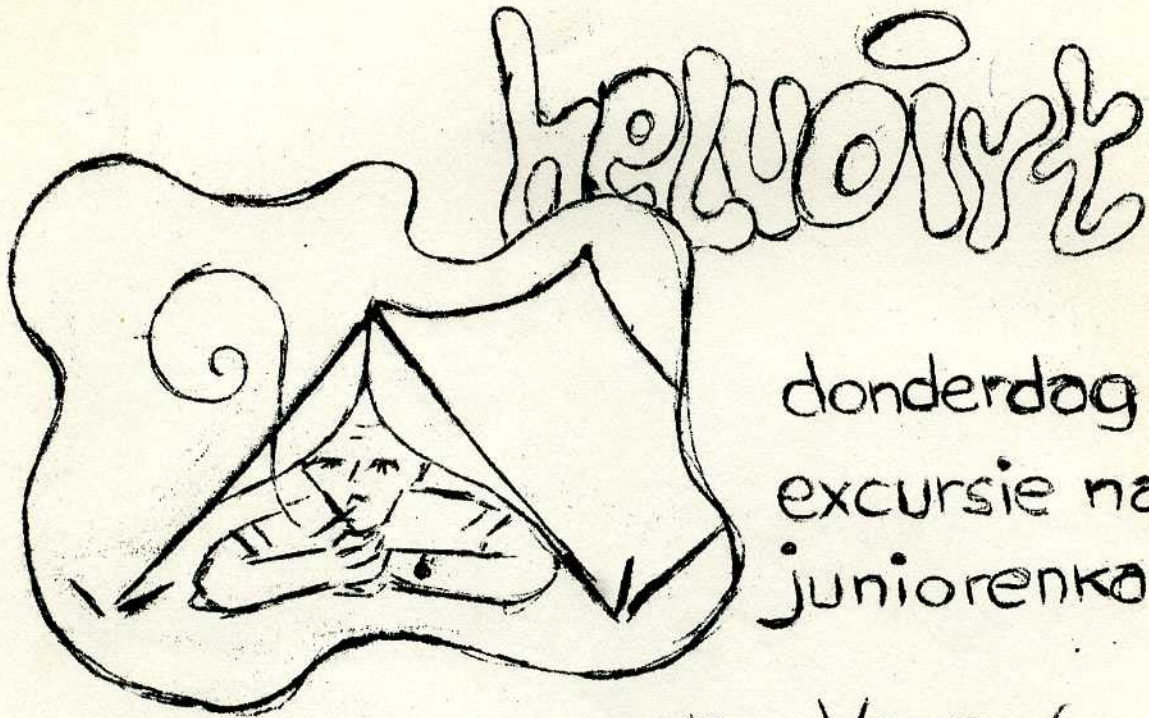 helvoirt
donderdag
excursie na
juniorenka